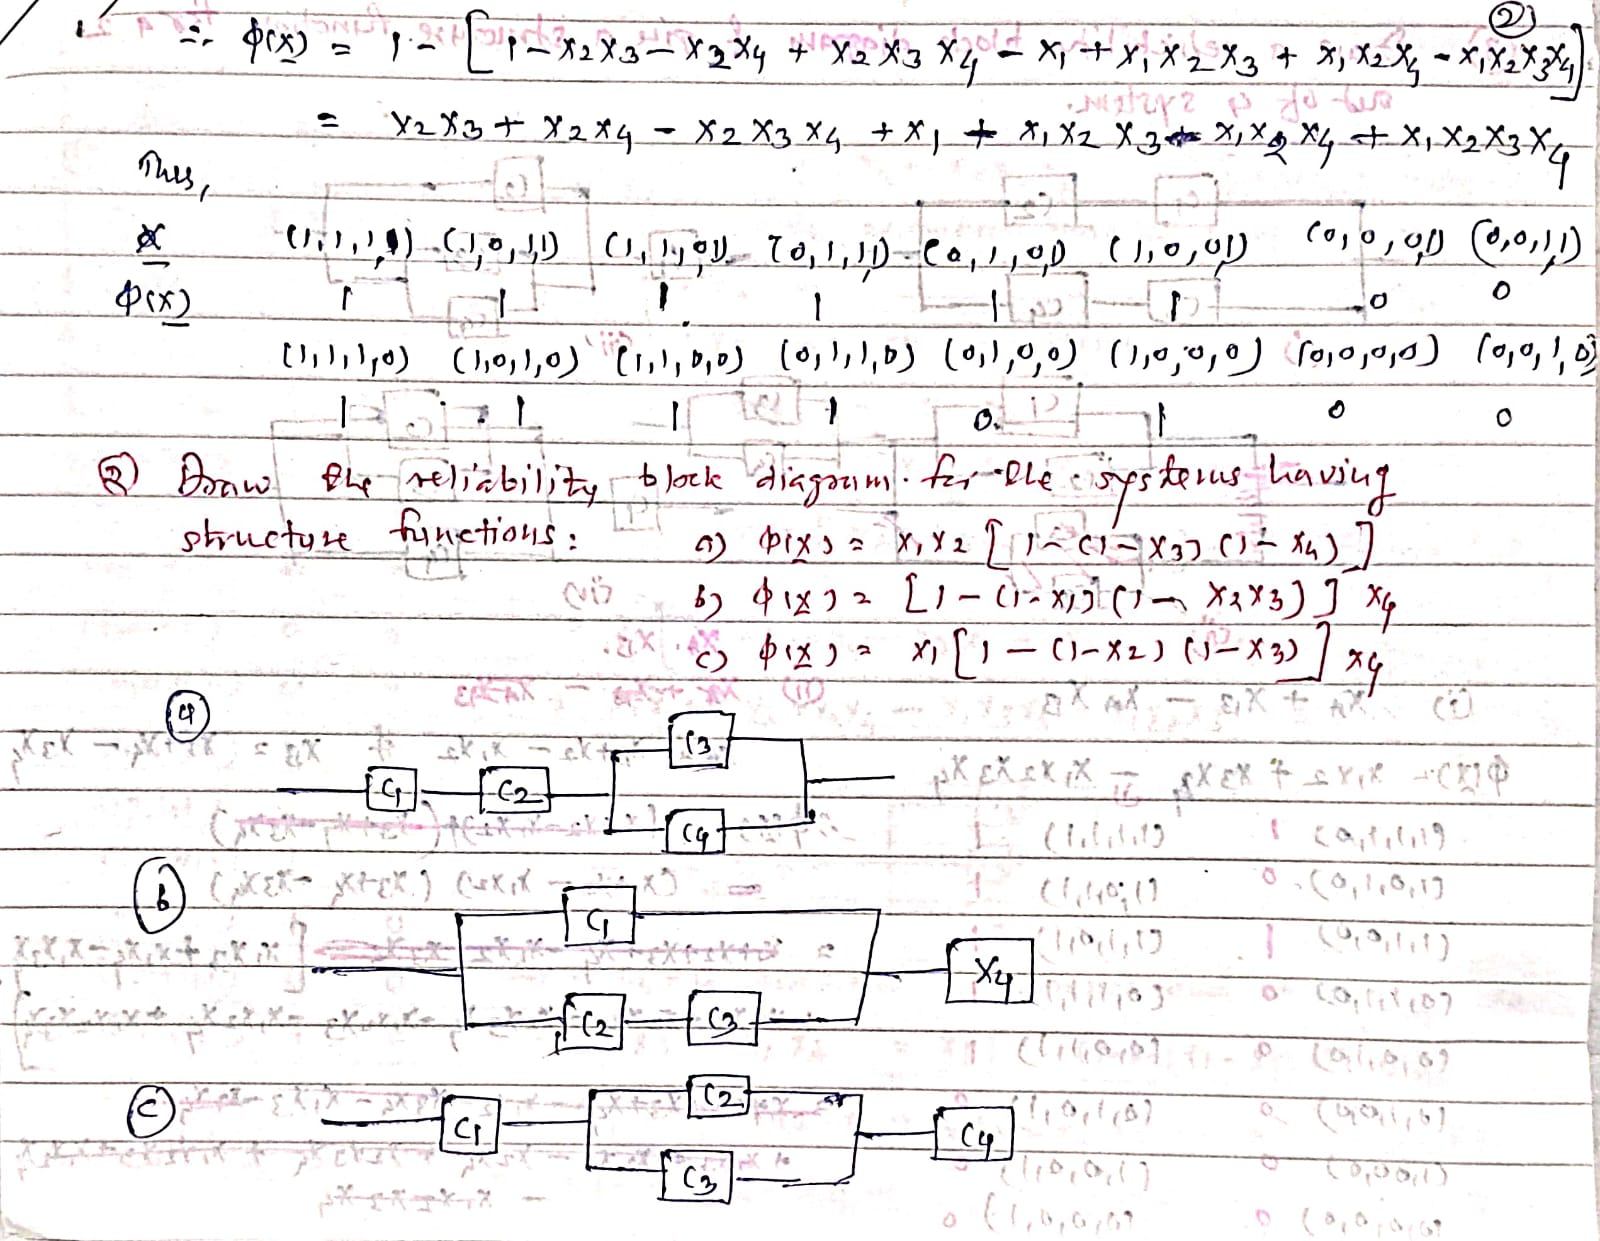 ②
∴ φ(x) = 1 - [1 - x2x3 - x2x4 + x2x3x4 - x1 + x1x2x3 + x1x2x4 - x1x2x3x4]
= x2x3 + x2x4 - x2x3x4 + x1 + x1x2x3 x1x2x4 + x1x2x3x4
Thus,
x (1,1,1,1) (1,0,1,1) (1,1,0,1) (0,1,1,1) (0,1,0,1) (1,0,0,1) (0,0,0,1) (0,0,1,1)
φ(x) 1 1 1 1 1 1 0 0
(1,1,1,0) (1,0,1,0) (1,1,0,0) (0,1,1,0) (0,1,0,0) (1,0,0,0) (0,0,0,0) (0,0,1,0)
1 1 1 1 0 1 0 0
② Draw the reliability block diagram for the systems having
structure functions: a) φ(x) = x1x2 [1 - (1 - x3)(1 - x4)]
b) φ(x) = [1 - (1 - x1)(1 - x2x3)] x4
c) φ(x) = x1 [1 - (1 - x2)(1 - x3)] x4
ⓐ C1 C2 C3 C4
ⓑ C1 C2 C3 X4
ⓒ C1 C2 C3 C4